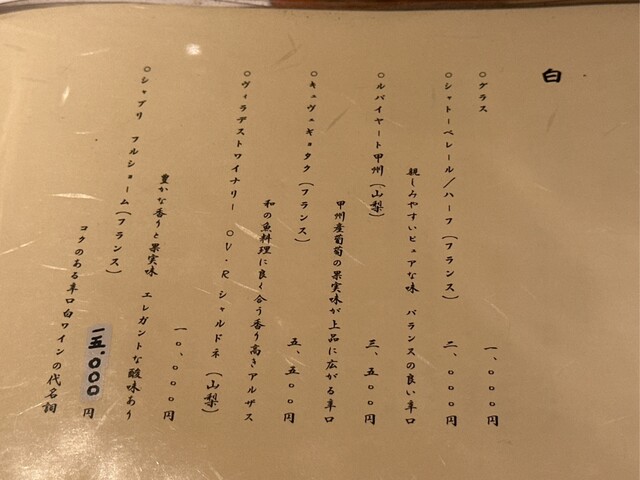 白
○グラス
一、〇〇〇円
○シャトーベレール／ハーフ（フランス）
二、〇〇〇円
親しみやすいピュアな味　バランスの良い辛口
○ルバイヤート甲州（山梨）
三、五〇〇円
甲州産葡萄の果実味が上品に広がる辛口
○キュヴェキョタク（フランス）
五、五〇〇円
和の魚料理に良く合う香り高きアルザス
○ヴィラデストワイナリー　○V・R　シャルドネ（山梨）
一〇、〇〇〇円
豊かな香りと果実味　エレガントな酸味あり
○シャブリ　フルショーム（フランス）
一五、〇〇〇円
コクのある辛口白ワインの代名詞